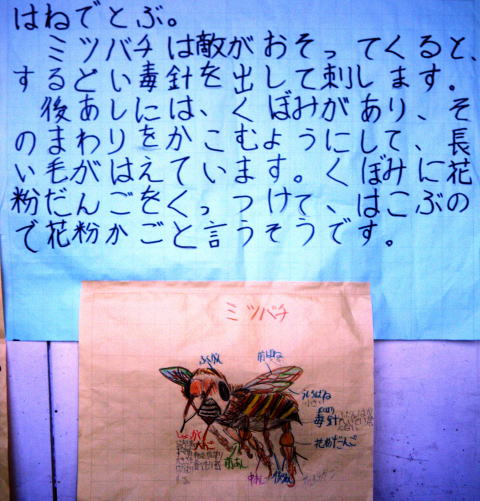 はねでとぶ。
ミツバチは敵がおそってくると、
するどい毒針を出して刺します。
後あしには、くぼみがあり、そ
のまわりをかこむようにして、長
い毛がはえています。くぼみに花
粉だんごをくっつけて、はこぶの
で花粉かごと言うそうです。
ミツバチ
前ばね
うしろばね
毒針
花粉だんご
前あし
中あし
後あし